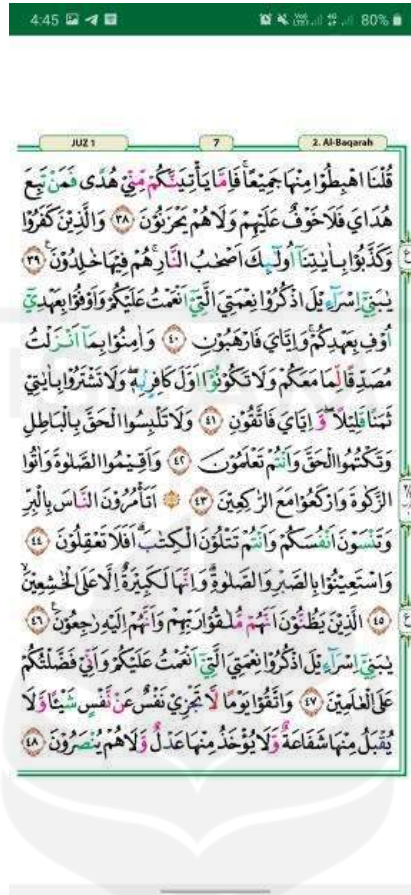 4:45 80%
JUZ 1 7 2. Al-Baqarah
قُلْنَا اهْبِطُوْا مِنْهَا جَمِيْعًا ۚ فَاِمَّا يَأْتِيَنَّكُمْ مِّنِّيْ هُدًى فَمَنْ تَبِعَ
هُدَايَ فَلَا خَوْفٌ عَلَيْهِمْ وَلَا هُمْ يَحْزَنُوْنَ ٣٨ وَالَّذِيْنَ كَفَرُوْا
وَكَذَّبُوْا بِاٰيٰتِنَآ اُولٰۤىِٕكَ اَصْحٰبُ النَّارِ ۚ هُمْ فِيْهَا خٰلِدُوْنَ ࣖ ٣٩
يٰبَنِيْٓ اِسْرَاۤءِيْلَ اذْكُرُوْا نِعْمَتِيَ الَّتِيْٓ اَنْعَمْتُ عَلَيْكُمْ وَاَوْفُوْا بِعَهْدِيْٓ
اُوْفِ بِعَهْدِكُمْۚ وَاِيَّايَ فَارْهَبُوْنِ ٤٠ وَاٰمِنُوْا بِمَآ اَنْزَلْتُ
مُصَدِّقًا لِّمَا مَعَكُمْ وَلَا تَكُوْنُوْٓا اَوَّلَ كَافِرٍۢ بِهٖ ۖ وَلَا تَشْتَرُوْا بِاٰيٰتِيْ
ثَمَنًا قَلِيْلًا ۖوَّاِيَّايَ فَاتَّقُوْنِ ٤١ وَلَا تَلْبِسُوا الْحَقَّ بِالْبَاطِلِ
وَتَكْتُمُوا الْحَقَّ وَاَنْتُمْ تَعْلَمُوْنَ ٤٢ وَاَقِيْمُوا الصَّلٰوةَ وَاٰتُوا
الزَّكٰوةَ وَارْكَعُوْا مَعَ الرّٰكِعِيْنَ ٤٣ ۞ اَتَأْمُرُوْنَ النَّاسَ بِالْبِرِّ
وَتَنْسَوْنَ اَنْفُسَكُمْ وَاَنْتُمْ تَتْلُوْنَ الْكِتٰبَ ۗ اَفَلَا تَعْقِلُوْنَ ٤٤
وَاسْتَعِيْنُوْا بِالصَّبْرِ وَالصَّلٰوةِ ۗ وَاِنَّهَا لَكَبِيْرَةٌ اِلَّا عَلَى الْخٰشِعِيْنَۙ
٤٥ الَّذِيْنَ يَظُنُّوْنَ اَنَّهُمْ مُّلٰقُوْا رَبِّهِمْ وَاَنَّهُمْ اِلَيْهِ رٰجِعُوْنَ ࣖ ٤٦
يٰبَنِيْٓ اِسْرَاۤءِيْلَ اذْكُرُوْا نِعْمَتِيَ الَّتِيْٓ اَنْعَمْتُ عَلَيْكُمْ وَاَنِّيْ فَضَّلْتُكُمْ
عَلَى الْعٰلَمِيْنَ ٤٧ وَاتَّقُوْا يَوْمًا لَّا تَجْزِيْ نَفْسٌ عَنْ نَّفْسٍ شَيْـًٔا وَّلَا
يُقْبَلُ مِنْهَا شَفَاعَةٌ وَّلَا يُؤْخَذُ مِنْهَا عَدْلٌ وَّلَا هُمْ يُنْصَرُوْنَ ٤٨